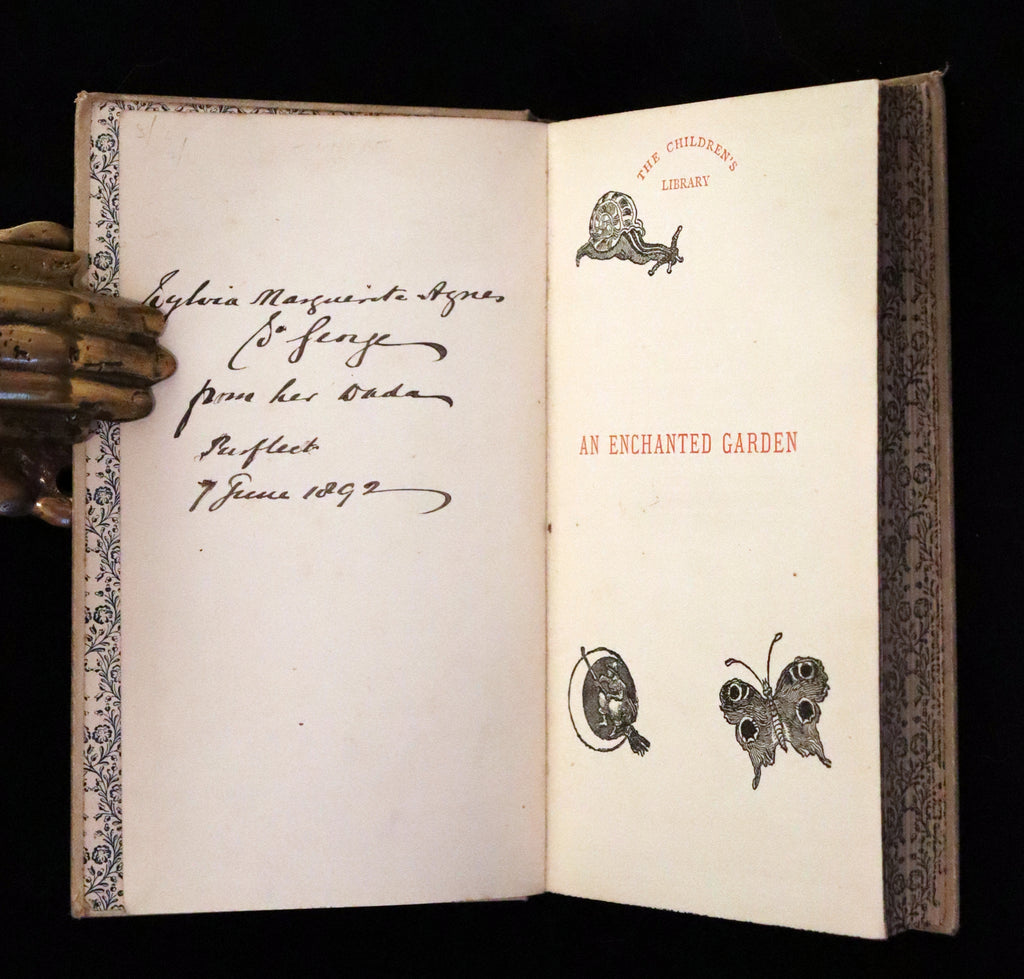 Sylvia Marguerite Agnes
St George
from her Dada
Purfleet
7 June 1892
THE CHILDREN'S
LIBRARY
AN ENCHANTED GARDEN